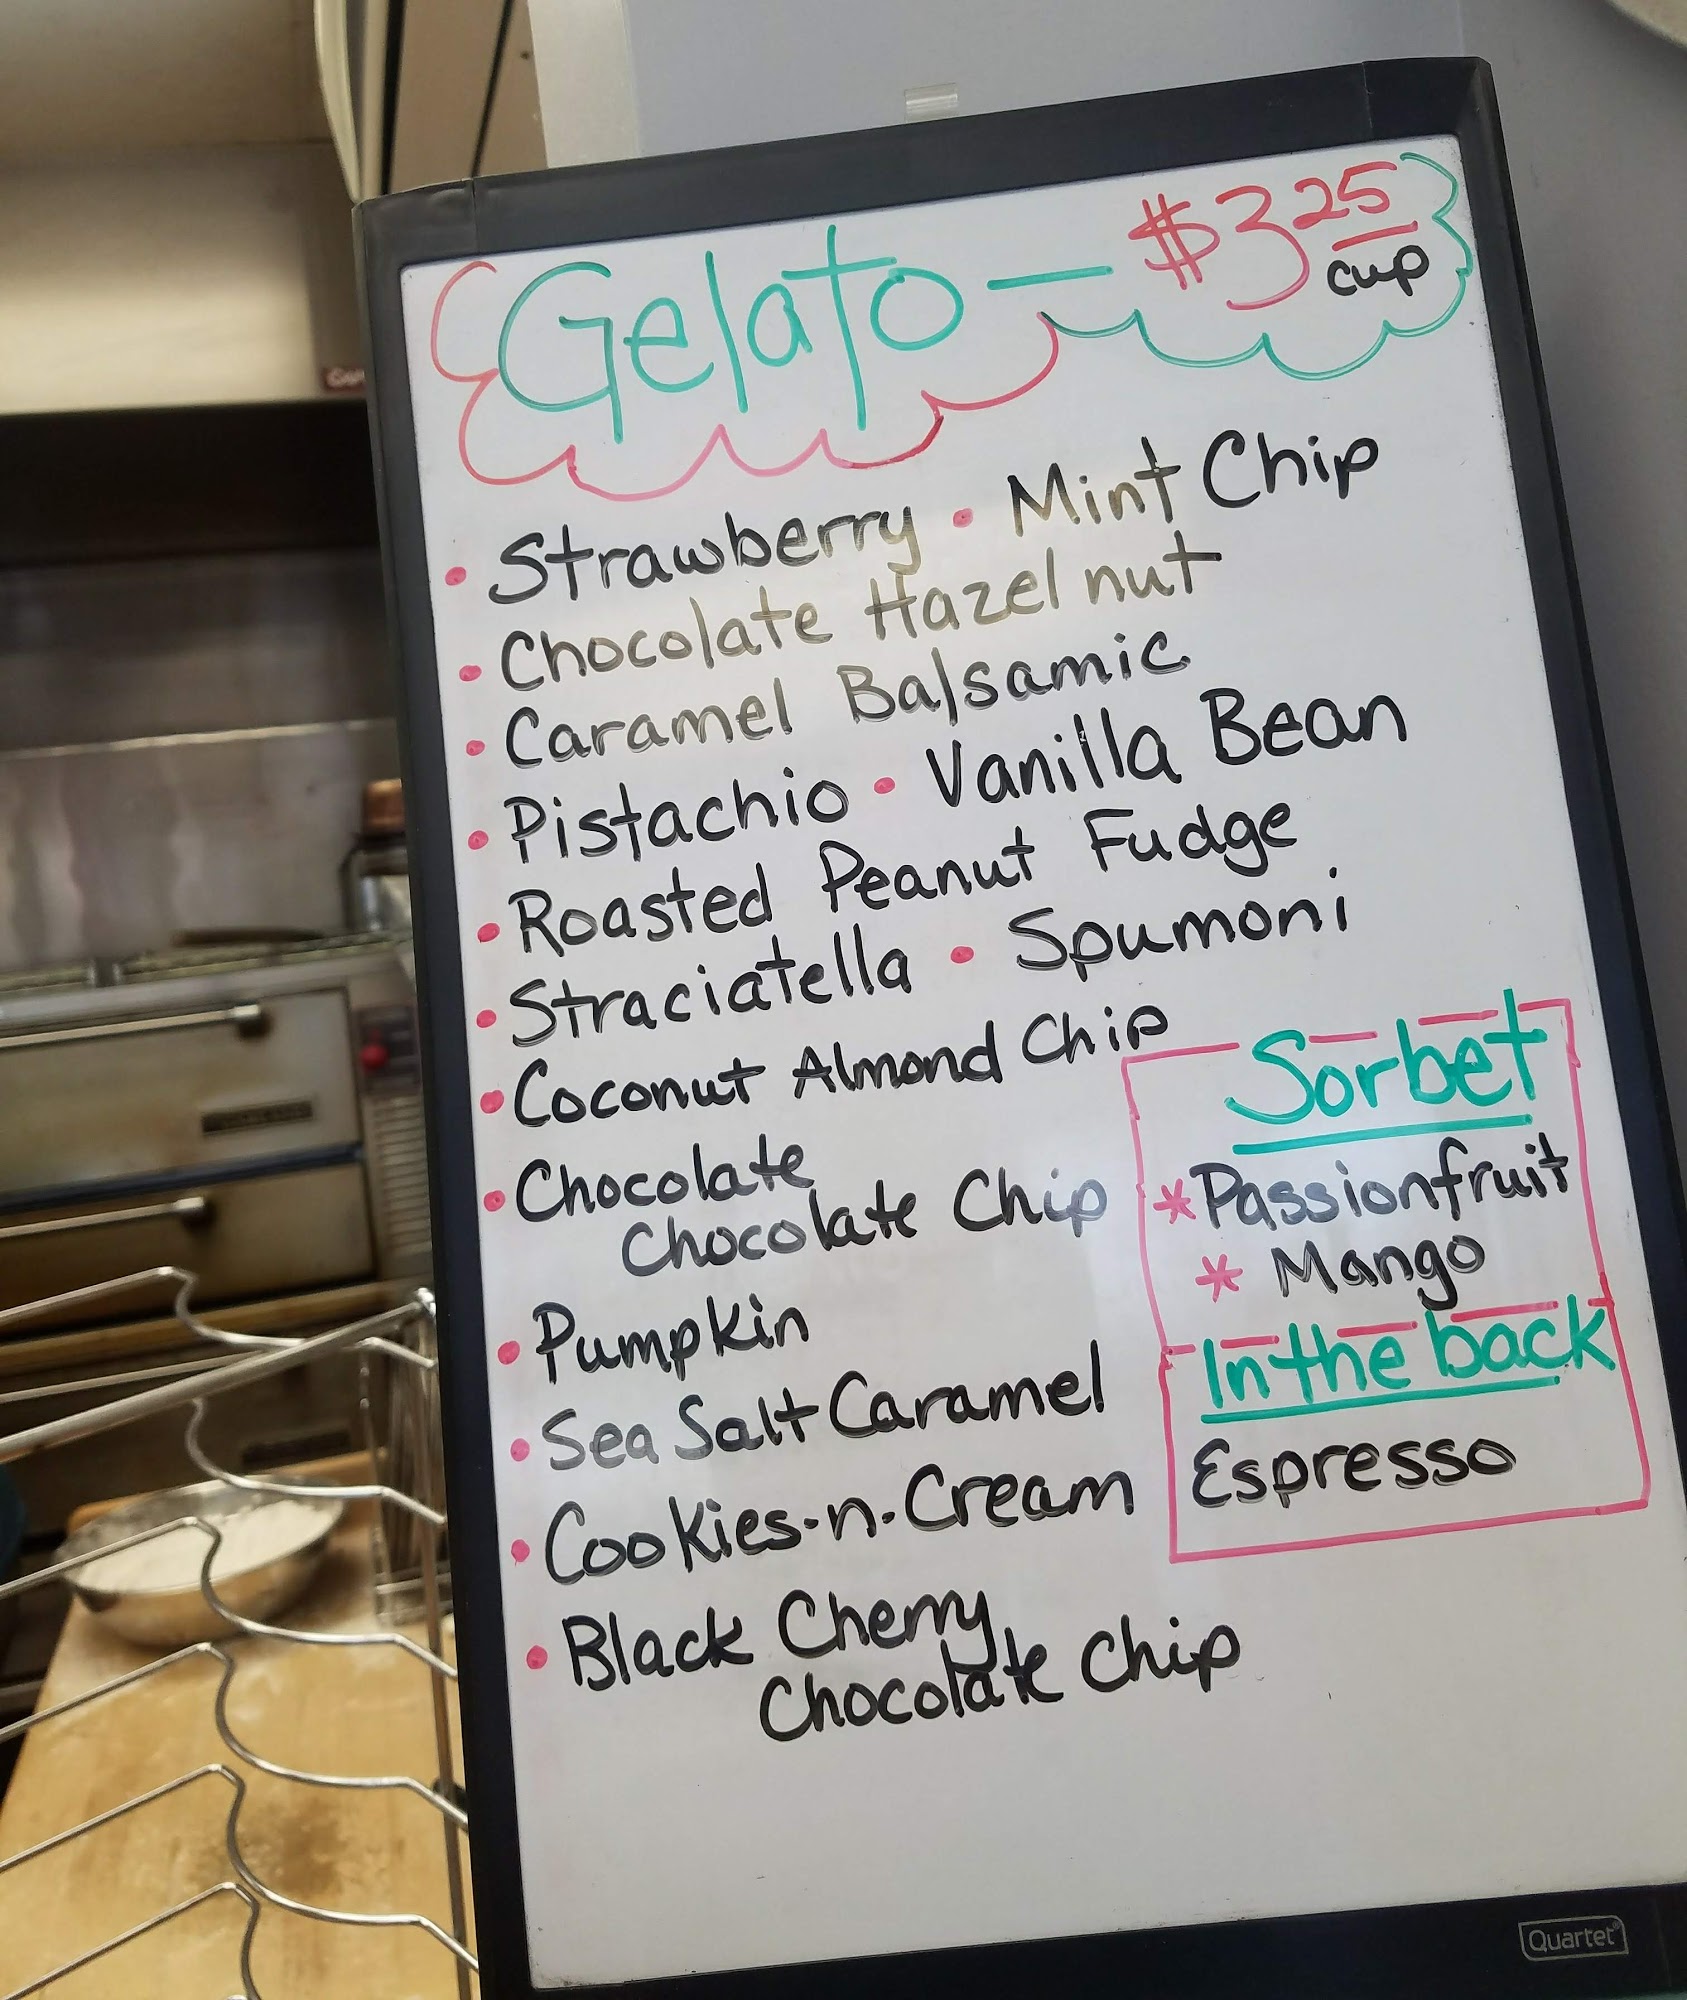 Gelato — $3.25 cup
• Strawberry • Mint Chip
• Chocolate Hazelnut
• Caramel Balsamic
• Pistachio • Vanilla Bean
• Roasted Peanut Fudge
• Straciatella • Spumoni
• Coconut Almond Chip
• Chocolate
Chocolate Chip
• Pumpkin
• Sea Salt Caramel
• Cookies-n-Cream
• Black Cherry
Chocolate Chip
Sorbet
* Passionfruit
* Mango
In the back
Espresso
Quartet®